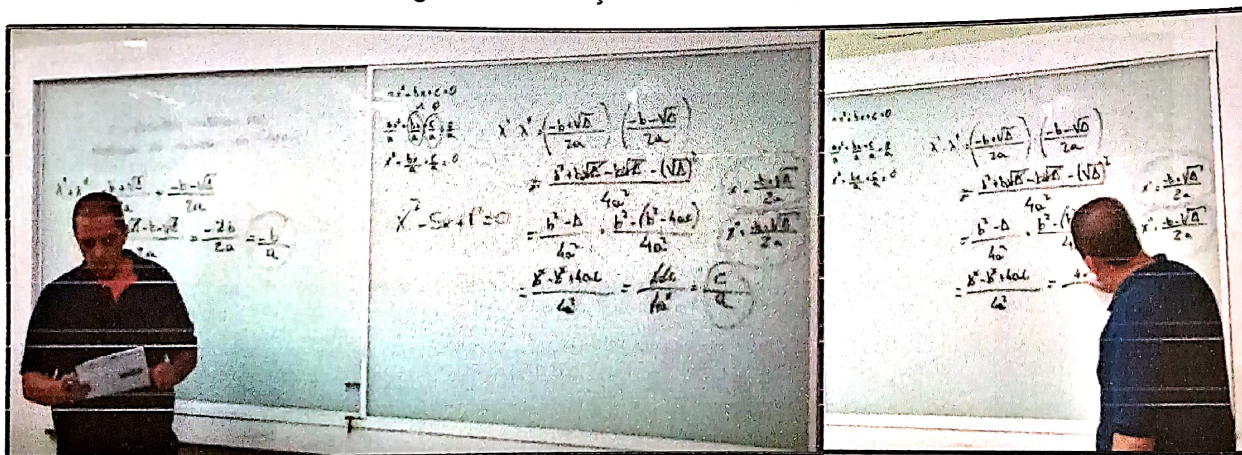 x' + x'' = \frac{-b+\sqrt{Δ}}{2a} + \frac{-b-\sqrt{Δ}}{2a}
= \frac{-2b}{2a} = \frac{-b}{a}
ax² + bx + c = 0
x² + \frac{bx}{a} + \frac{c}{a} = 0
x² - Sx + P = 0
x' · x'' = (\frac{-b+\sqrt{Δ}}{2a}) · (\frac{-b-\sqrt{Δ}}{2a})
= \frac{b²+b\sqrt{Δ}-b\sqrt{Δ}-(\sqrt{Δ})²}{4a²}
= \frac{b²-Δ}{4a²} = \frac{b²-(b²-4ac)}{4a²}
= \frac{b²-b²+4ac}{4a²} = \frac{4ac}{4a²} = \frac{c}{a}
x' = \frac{-b+\sqrt{Δ}}{2a}
x'' = \frac{-b-\sqrt{Δ}}{2a}
ax² + bx + c = 0
\frac{ax²}{a} + \frac{bx}{a} + \frac{c}{a} = \frac{0}{a}
x² + \frac{bx}{a} + \frac{c}{a} = 0
x' · x'' = (\frac{-b+\sqrt{Δ}}{2a}) · (\frac{-b-\sqrt{Δ}}{2a})
= \frac{b²+b\sqrt{Δ}-b\sqrt{Δ}-(\sqrt{Δ})²}{4a²}
= \frac{b²-Δ}{4a²}
= \frac{b²-b²+4ac}{4a²} =
x' = \frac{-b+\sqrt{Δ}}{2a}
x'' = \frac{-b-\sqrt{Δ}}{2a}